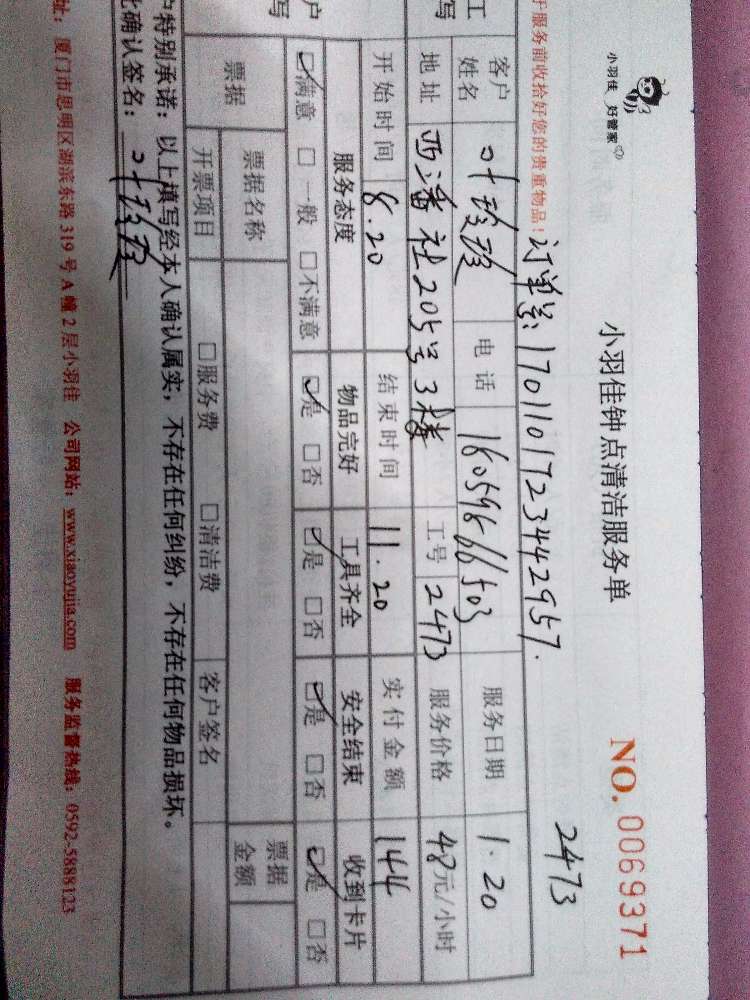 小羽佳 好管家
小羽佳钟点清洁服务单
NO. 0069371
服务前收拾好您的贵重物品！
订单号: 1701101723442957.
2473
工
写
客户姓名 叶 电话 18059866503 服务日期 1.20
地址 西潘社205号3楼 工号 2473 服务价格 48元/小时
开始时间 8.20 结束时间 11.20 实付金额 144
户
写
服务态度 物品完好 工具齐全 安全结束 收到卡片
☑满意 □一般 □不满意 ☑是 □否 ☑是 □否 ☑是 □否 ☑是 □否
票据 票据名称 票据金额
开票项目 □服务费 □清洁费 客户签名
户特别承诺：以上填写经本人确认属实，不存在任何纠纷，不存在任何物品损坏。
此确认签名： 叶
址：厦门市思明区湖滨东路 319 号 A 幢 2 层小羽佳 公司网站：www.xiaoyujia.com 服务监督热线：0592-5888123